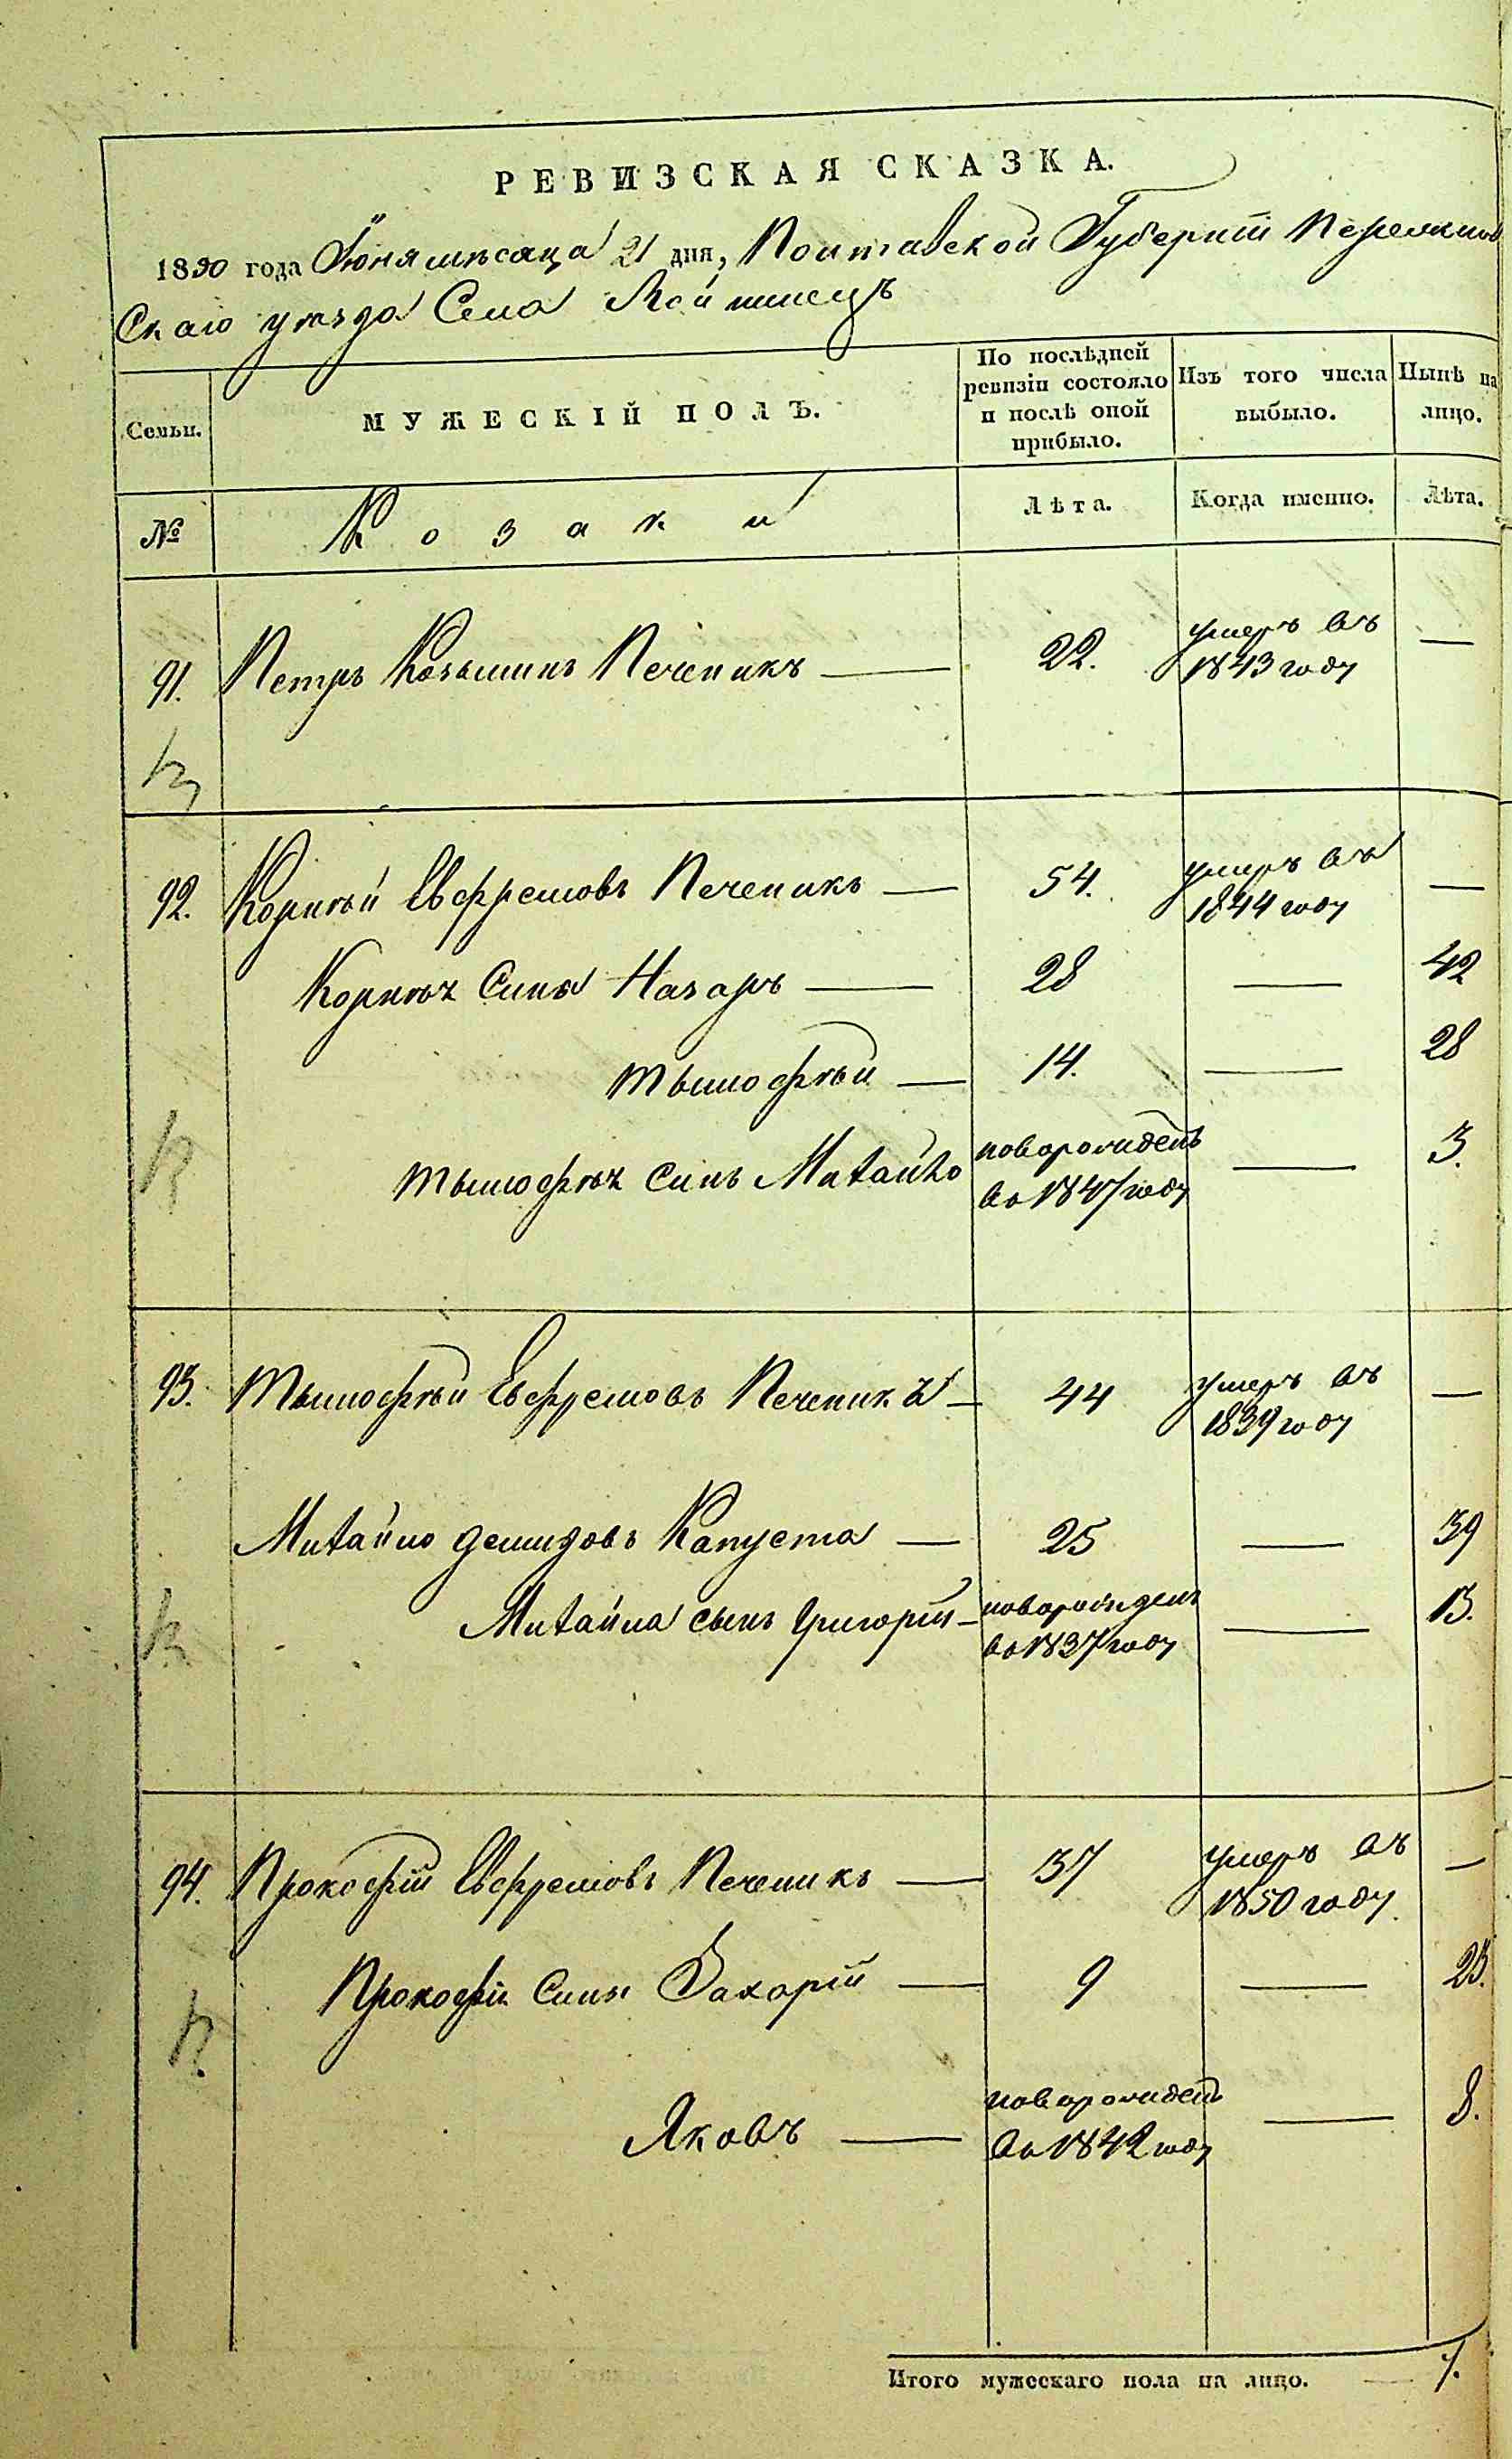 РЕВИЗСКАЯ СКАЗКА.
1850 года Іюня мѣсяца 21 дня, Полтавской Губерніи
Скаго уѣзда Села
Семьи.
МУЖЕСКІЙ ПОЛЪ.
По послѣдней ревизіи состояло и послѣ оной прибыло.
Изъ того числа выбыло.
Нынѣ на лицо.
№
Козаки
Лѣта.
Когда именно.
Лѣта.
91. Петръ Козьминъ Печепикъ — 22. умеръ въ 1843 году —
92. Корнѣй Евфремовъ Печепикъ — 54. умеръ въ 1844 году —
Корнѣя Сины Назаръ — 28 — 42
Тымофѣй — 14. — 28
Тымофѣя синъ Михайло новорожденъ въ 1847 году — 3.
93. Тымофѣй Евфремовъ Печепикъ — 44 умеръ въ 1839 году —
Михайло Демидовъ Капуста — 25 — 39
Михайла сынъ Григорій — новорожденъ въ 1837 году — 13.
94. Прокофій Евфремовъ Печепикъ — 37 умеръ въ 1850 году —
Прокофія Сины Захарій — 9 — 23.
Яковъ — новорожденъ въ 1842 году — 8.
Итого мужескаго пола на лицо. — 7.